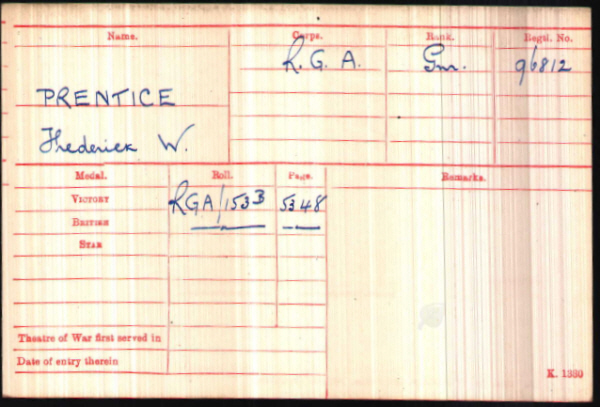 Name. Corps. Rank. Regtl. No.
R. G. A. Gnr. 96812
PRENTICE
Frederick W.
Medal. Roll. Page. Remarks.
VICTORY RGA/153B 5348
BRITISH
STAR
Theatre of War first served in
Date of entry therein
K. 1380